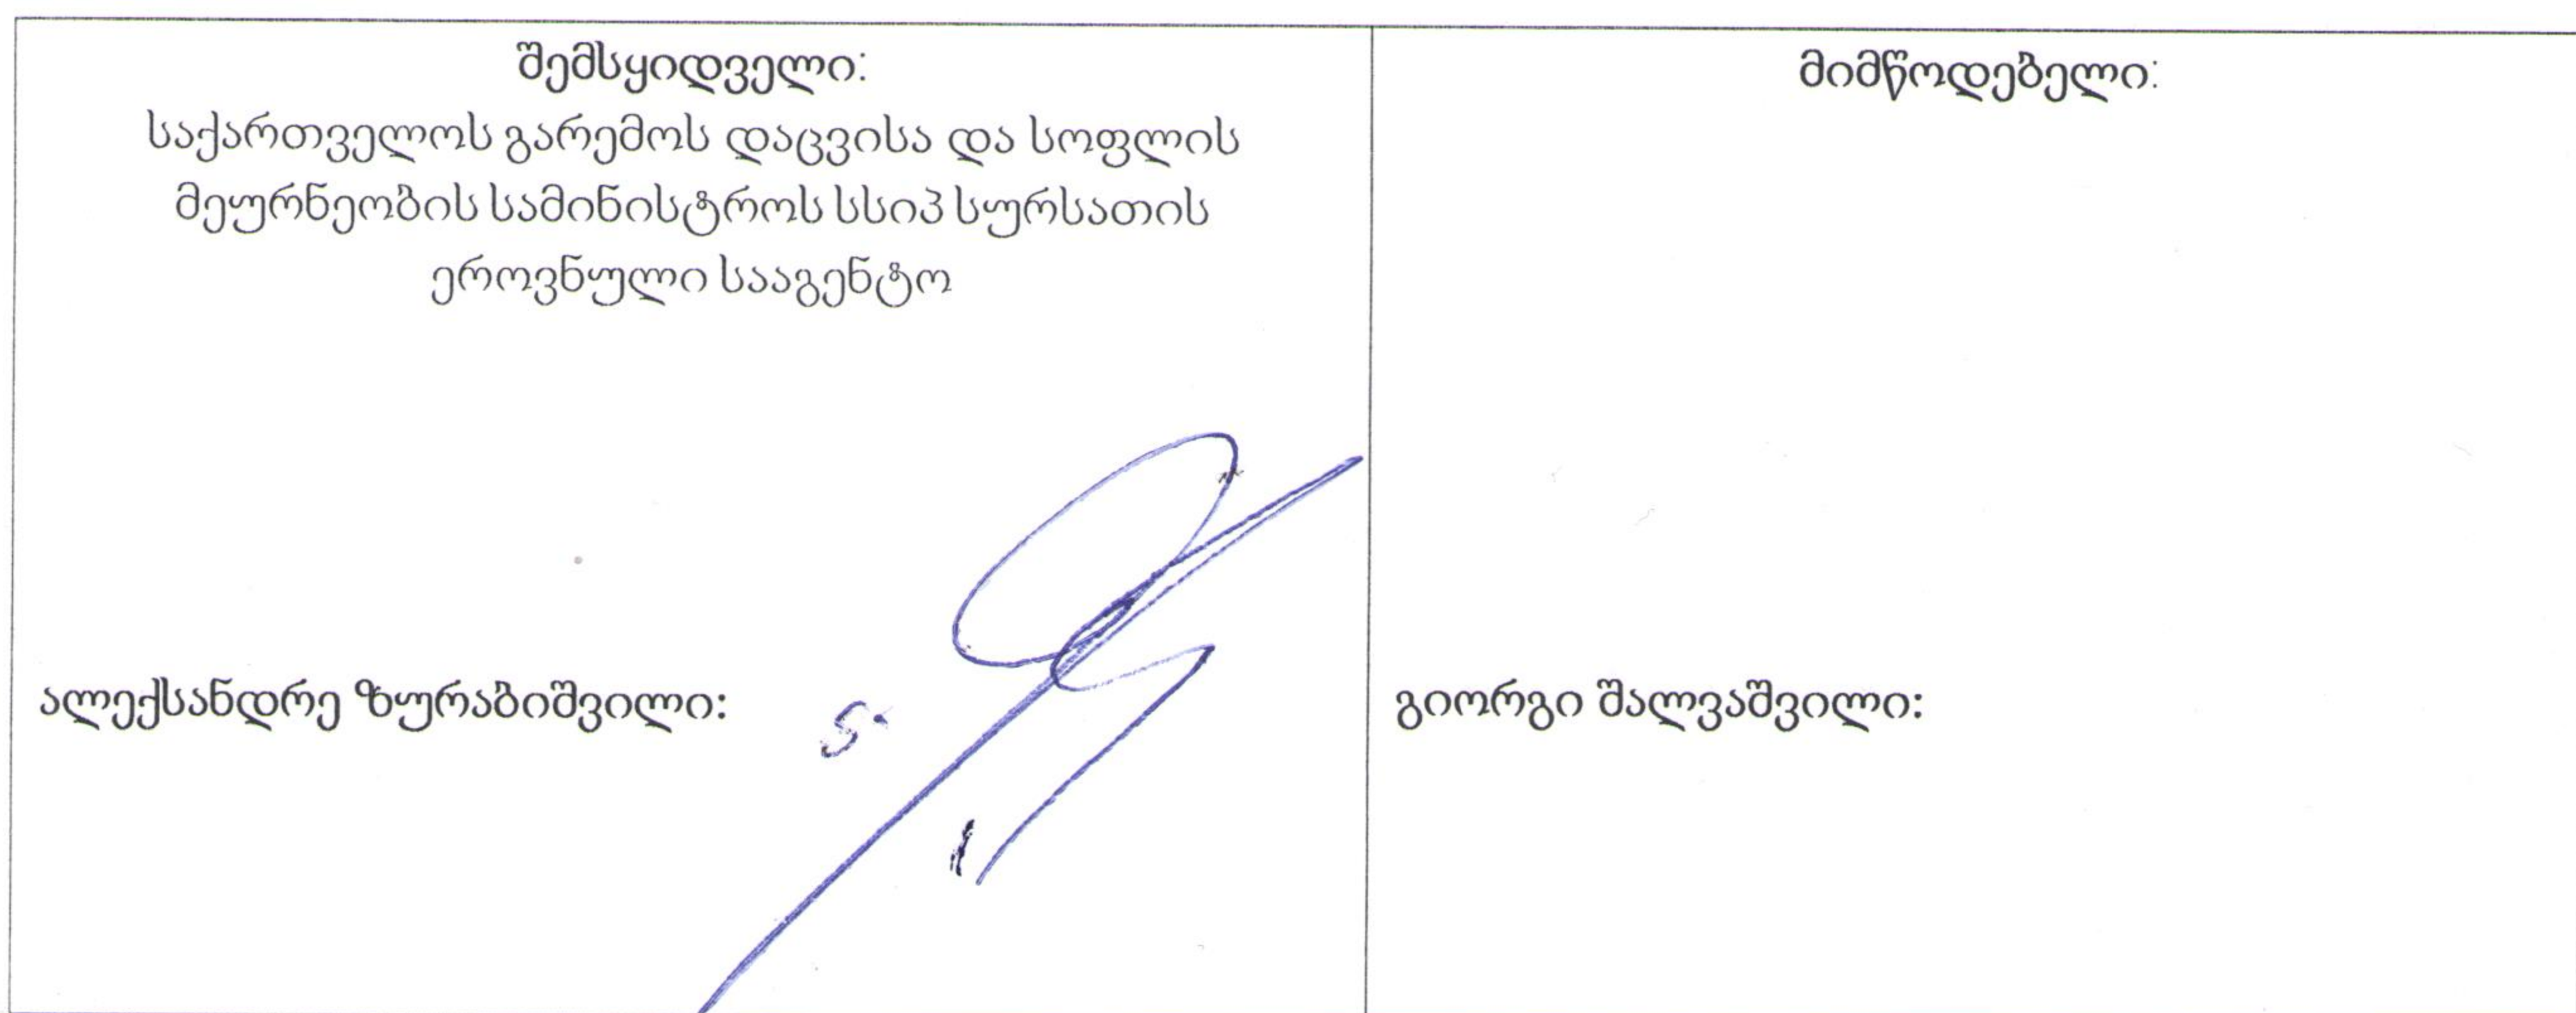 შემსყიდველი:
საქართველოს გარემოს დაცვისა და სოფლის
მეურნეობის სამინისტროს სსიპ სურსათის
ეროვნული სააგენტო
ალექსანდრე ზურაბიშვილი:
მიმწოდებელი:
გიორგი შალვაშვილი: